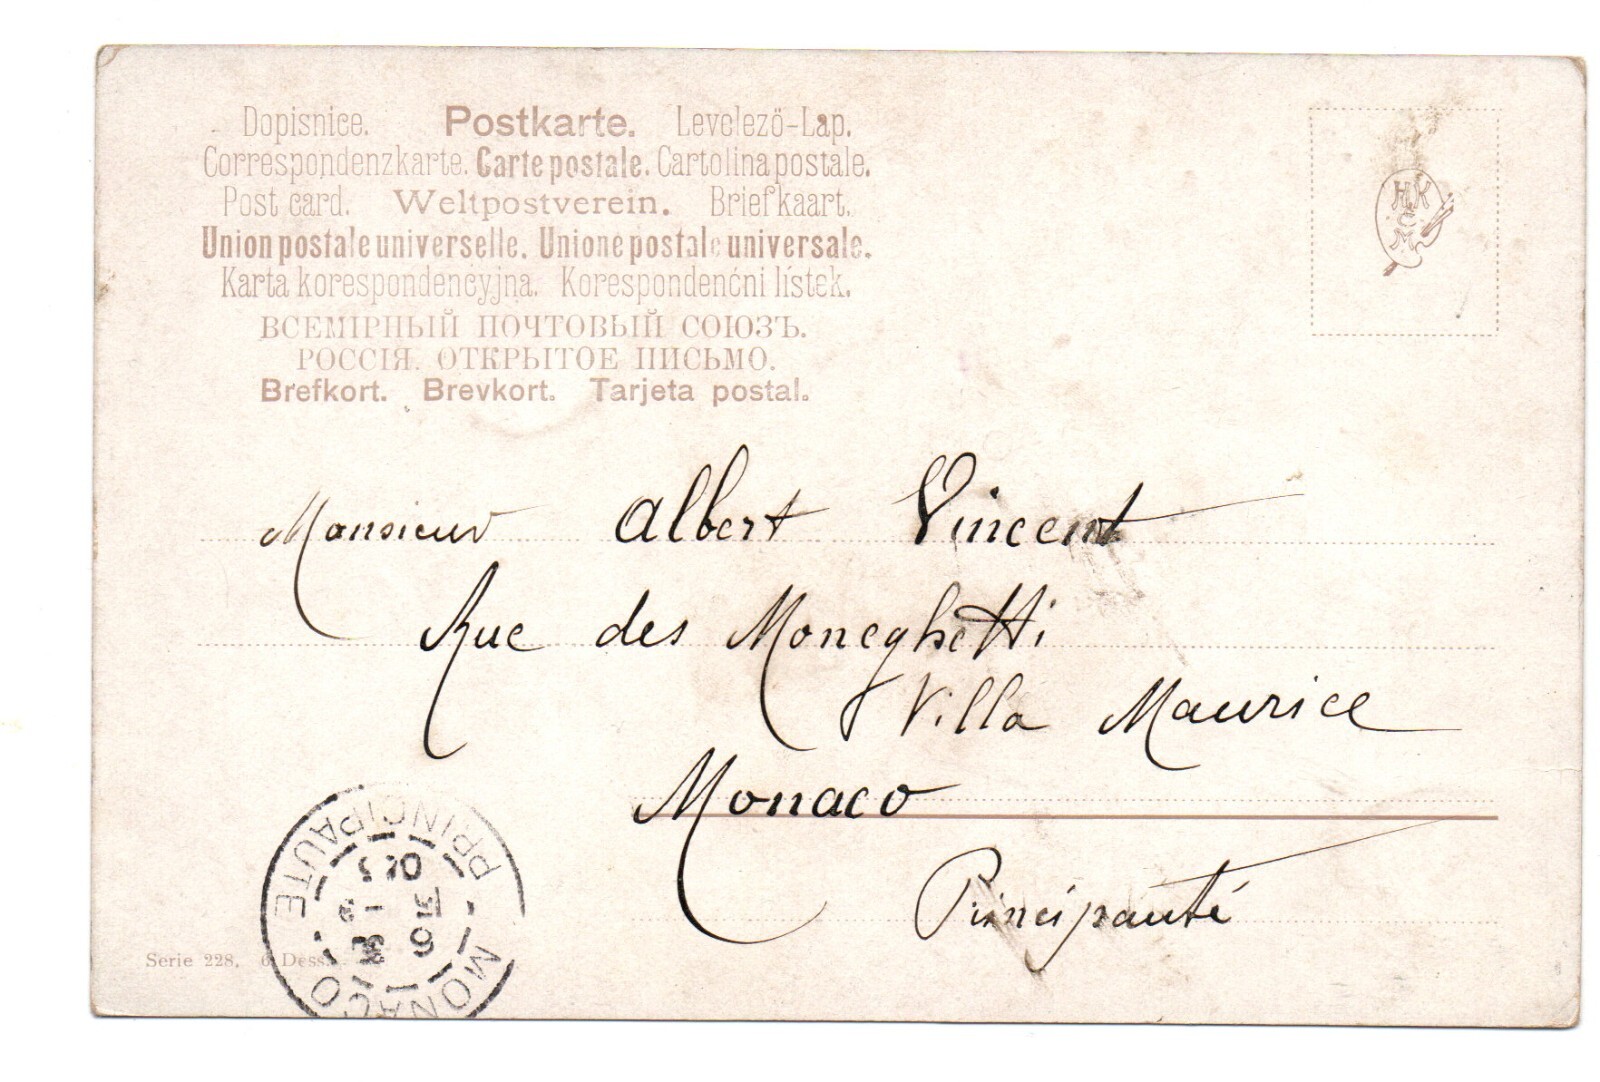 Dopisnice. Postkarte. Levelező-Lap.
Correspondenzkarte. Carte postale. Cartolina postale.
Post card. Weltpostverein. Briefkaart.
Union postale universelle. Unione postale universale.
Karta korespondencyjna. Korespondenćni lístek.
ВСЕМІРНЫЙ ПОЧТОВЫЙ СОЮЗЪ.
РОССІЯ. ОТКРЫТОЕ ПИСЬМО.
Brefkort. Brevkort. Tarjeta postal.
HK
C
M
Monsieur Albert Vincent
Rue des Moneghetti
Villa Maurice
Monaco
Principauté
MONACO
PRINCIPAUTE
Serie 228. 6 Dess.